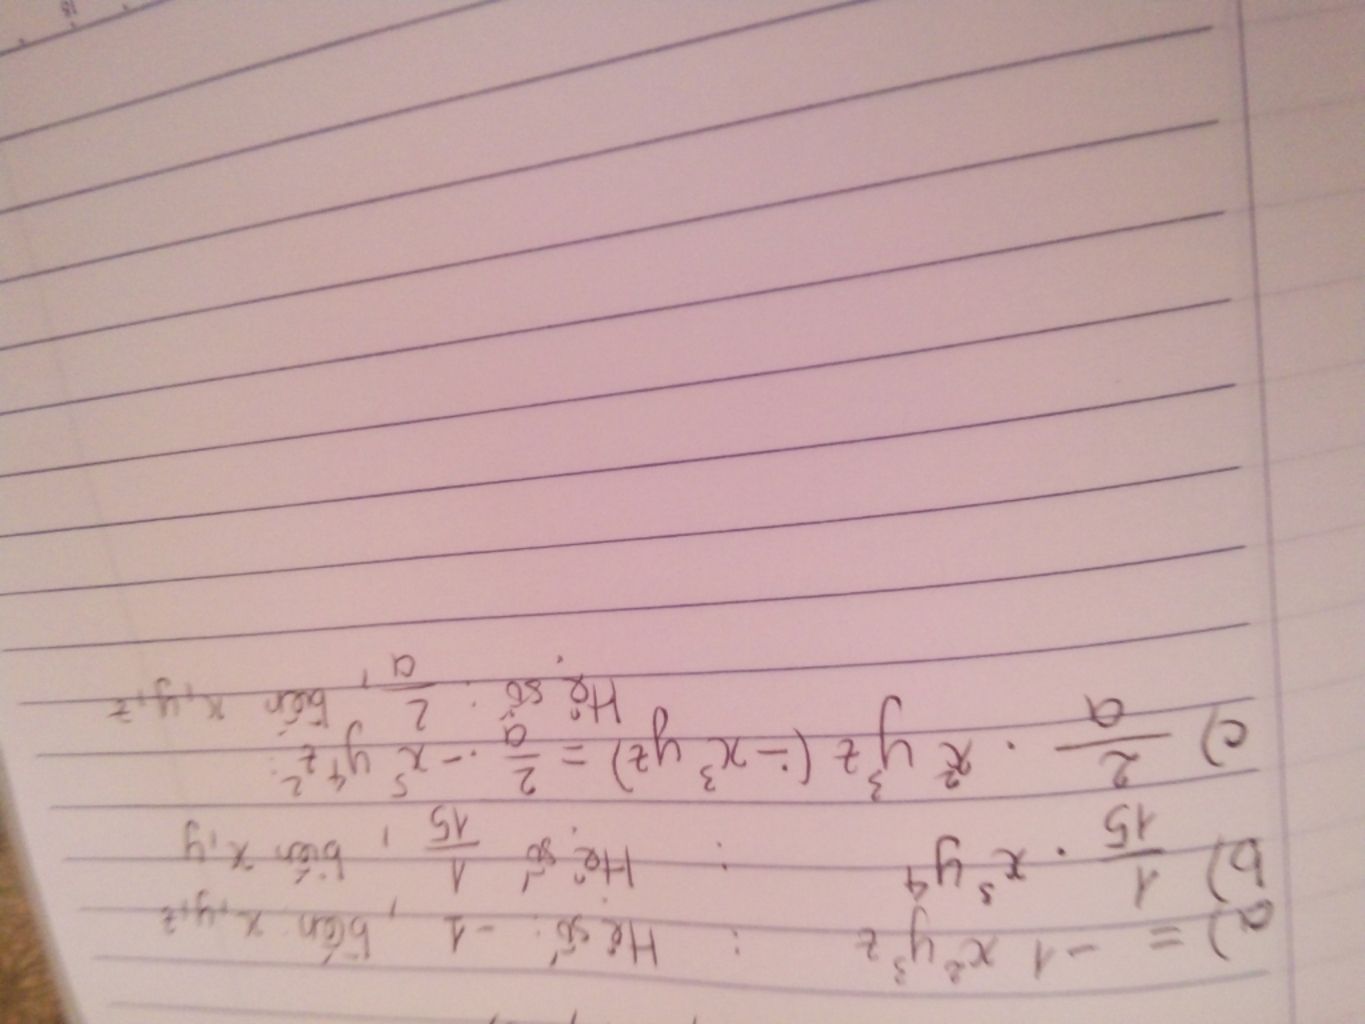 a) = -1 x²y³z : Hệ số: -1, biến x,y,z
b) 1/15 . x³y⁴ : Hệ số 1/15, biến x,y
c) 2/a . x²y³z (-x³yz) = 2/a . -x⁵y⁴z²:
Hệ số: 2/a, biến x,y,z